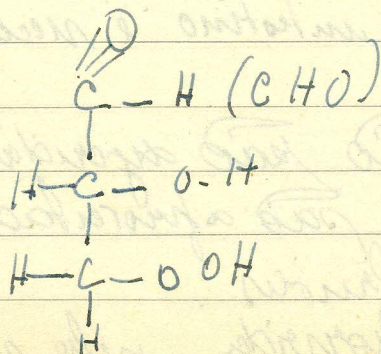 O
C - H (CHO)
H - C - O - H
H - C - O OH
H